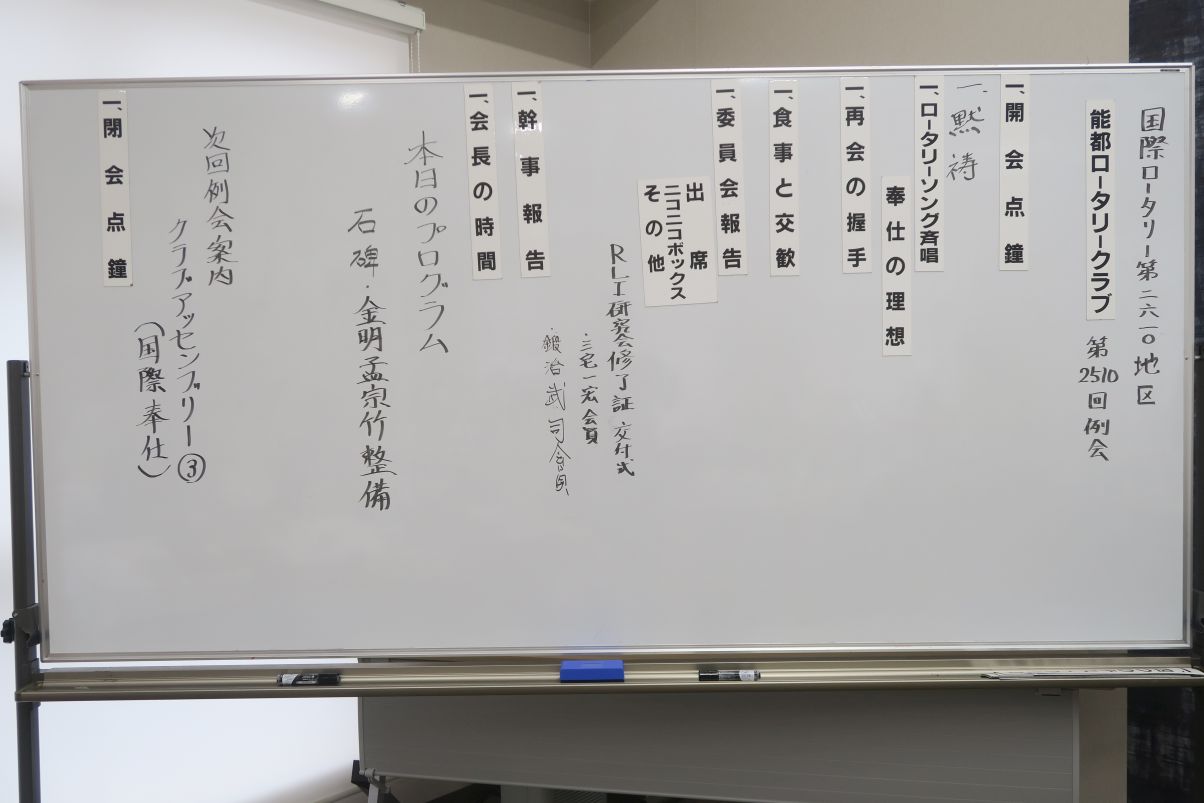 国際ロータリー第二六一〇地区
能都ロータリークラブ 第2510回例会
一、開会点鐘
一、黙祷
一、ロータリーソング斉唱
奉仕の理想
一、再会の握手
一、食事と交歓
一、委員会報告
出席
ニコニコボックス
その他
RLI研究会修了証 交付式
・三宅一宏会員
・鍛治武司會員
一、幹事報告
一、会長の時間
本日のプログラム
石碑・金明孟宗竹整備
次回例会案内
クラブアッセンブリー③
(国際奉仕)
一、閉会点鐘